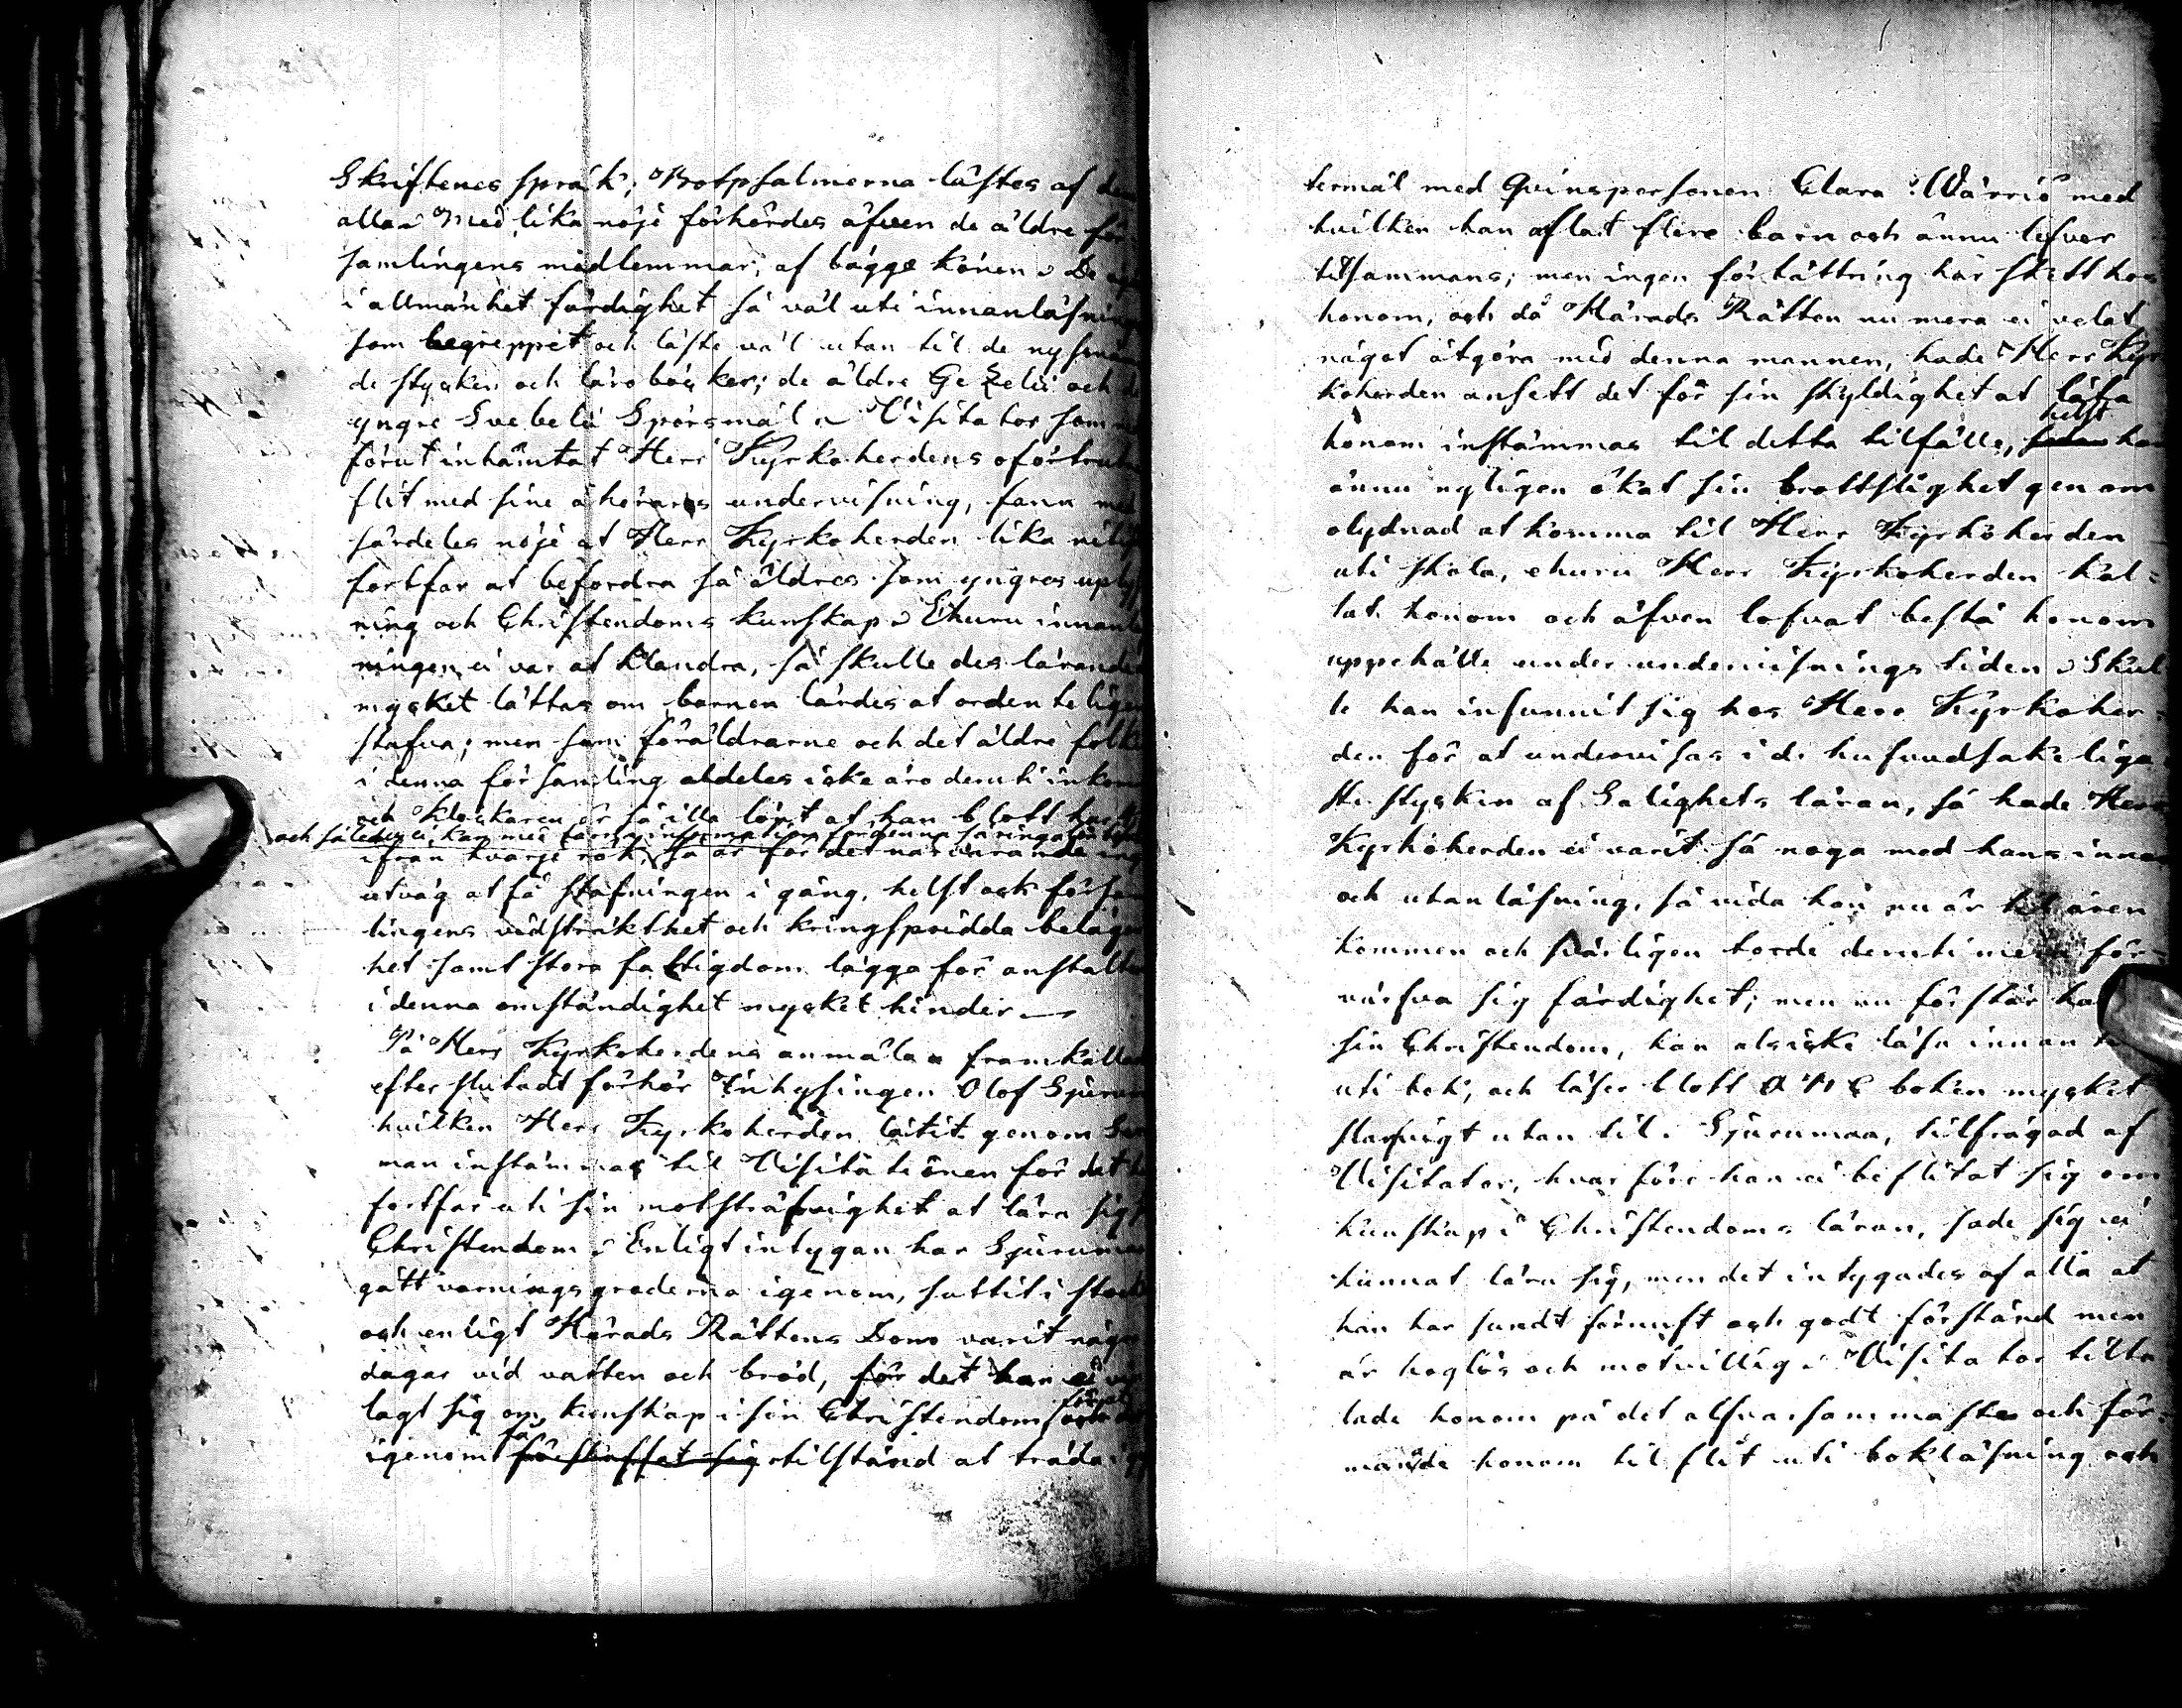 Skriftenes språk; Botpsalmerna lästes af dem
alla. Med lika nöje förhördes äfven de äldre för
samlingens medlemmar, af bägge könen. De
i allmänhet färdighet så väl uti innanläsning
som begreppet och läste väl utan til de nysnäm
de stycken och läroböcker; de äldre Gezelii och de
yngre Svebelii Spörsmål. Visitator som
förut inhämtat Herr Kyrkoherdens oförtrutne
flit med sine åhörares undervisning, fann med
särdeles nöje at Herr Kyrkoherden lika nitisk
fortfar at befordra så äldres som yngres uplys
ning och Christendoms kunskap. Ehuru innanläs
ningen ei var at klandra, så skulle des lärande
mycket lättas om barnen lärdes at ordenteligen
stafva; men som föräldrarne och det äldre folket
i denna församling aldeles icke äro deruti inkomne
och Klockaren är så illa lönt at han blott har
och således ei kan med barns information för denna så ringa
ifrån hvarje rök, så är för det närvarande ing
utväg at få stafningen i gång, helst ock försam
lingens vidsträkthet och kringspridda belägen
het samt stora fattigdom lägga för anstalter
i denna omständighet mycket hinder.
På Herr Kyrkoherdens anmälan framkallades
efter slutadt förhör Inhysingen Olof Sjurumaa
hvilken Herr Kyrkoherden låtit genom
man instämmas til Visitationen för det han
fortfar uti sin motsträfvighet at lära sig
Christendom. Enligt intygan har Sjurumaa
gått varningsgraderna igenom, suttit i stock
och enligt Härads Rättens Dom varit några
dagar vid vatten och bröd, för det han ei
lagt sig om kunskap i sin Christendom
igenom få förskaffat sig tilstånd at träda i
termål med Qvinspersonen Clara Wärriö med
hvilken han aflat flere barn och ännu lefver
tilsammans; men ingen förbättring har skett hos
honom, och då Härads Rätten nu mera ei velat
något åtgöra med denna mannen, hade Herr Kyr
koherden ansett det för sin skyldighet at låta
helst
honom instämmas til detta tilfälle, han
ännu nyligen ökat sin brottslighet genom
olydnad at komma til Herr Kyrkoherden
uti skola, ehuru Herr Kyrkoherden kal=
lat honom och äfven lofvat bestå honom
uppehälle under undervisnings tiden. Skul
le han infunnit sig hos Herr Kyrkoher=
den för at undervisas i de hufvudsakeliga
ste stycken af Salighets läran, så hade Herr
Kyrkoherden ei varit så noga med hans innan
och utan läsning, så vida han nu är til åren
kommen och svårligen torde deruti mera för=
värfva sig färdighet; men nu förstår han
sin Christendom, kan alsicke läsa innan til
uti bok, och läser blott A B C boken mycket
slarfvigt utan til. Sjurumaa, tilfrågad af
Visitator, hvarföre han ei beflitat sig om
kunskap i Christendoms läran, sade sig ei
kunnat lära sig, men det intygades af alla at
han har sundt förnuft och godt förstånd men
är håglös och motvillig. Visitator tilta
lade honom på det alfvarsammaste och för=
manade honom til flit uti bokläsning och